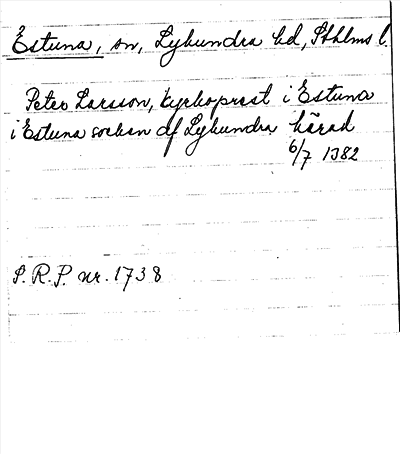 Estuna, sn, Lyhundra hd, Sthlms l.
Peter Larsson, kyrkoprest i Estuna
i Estuna sochen af Lyhundra härad
6/7 1382
S.R.P. nr. 1738